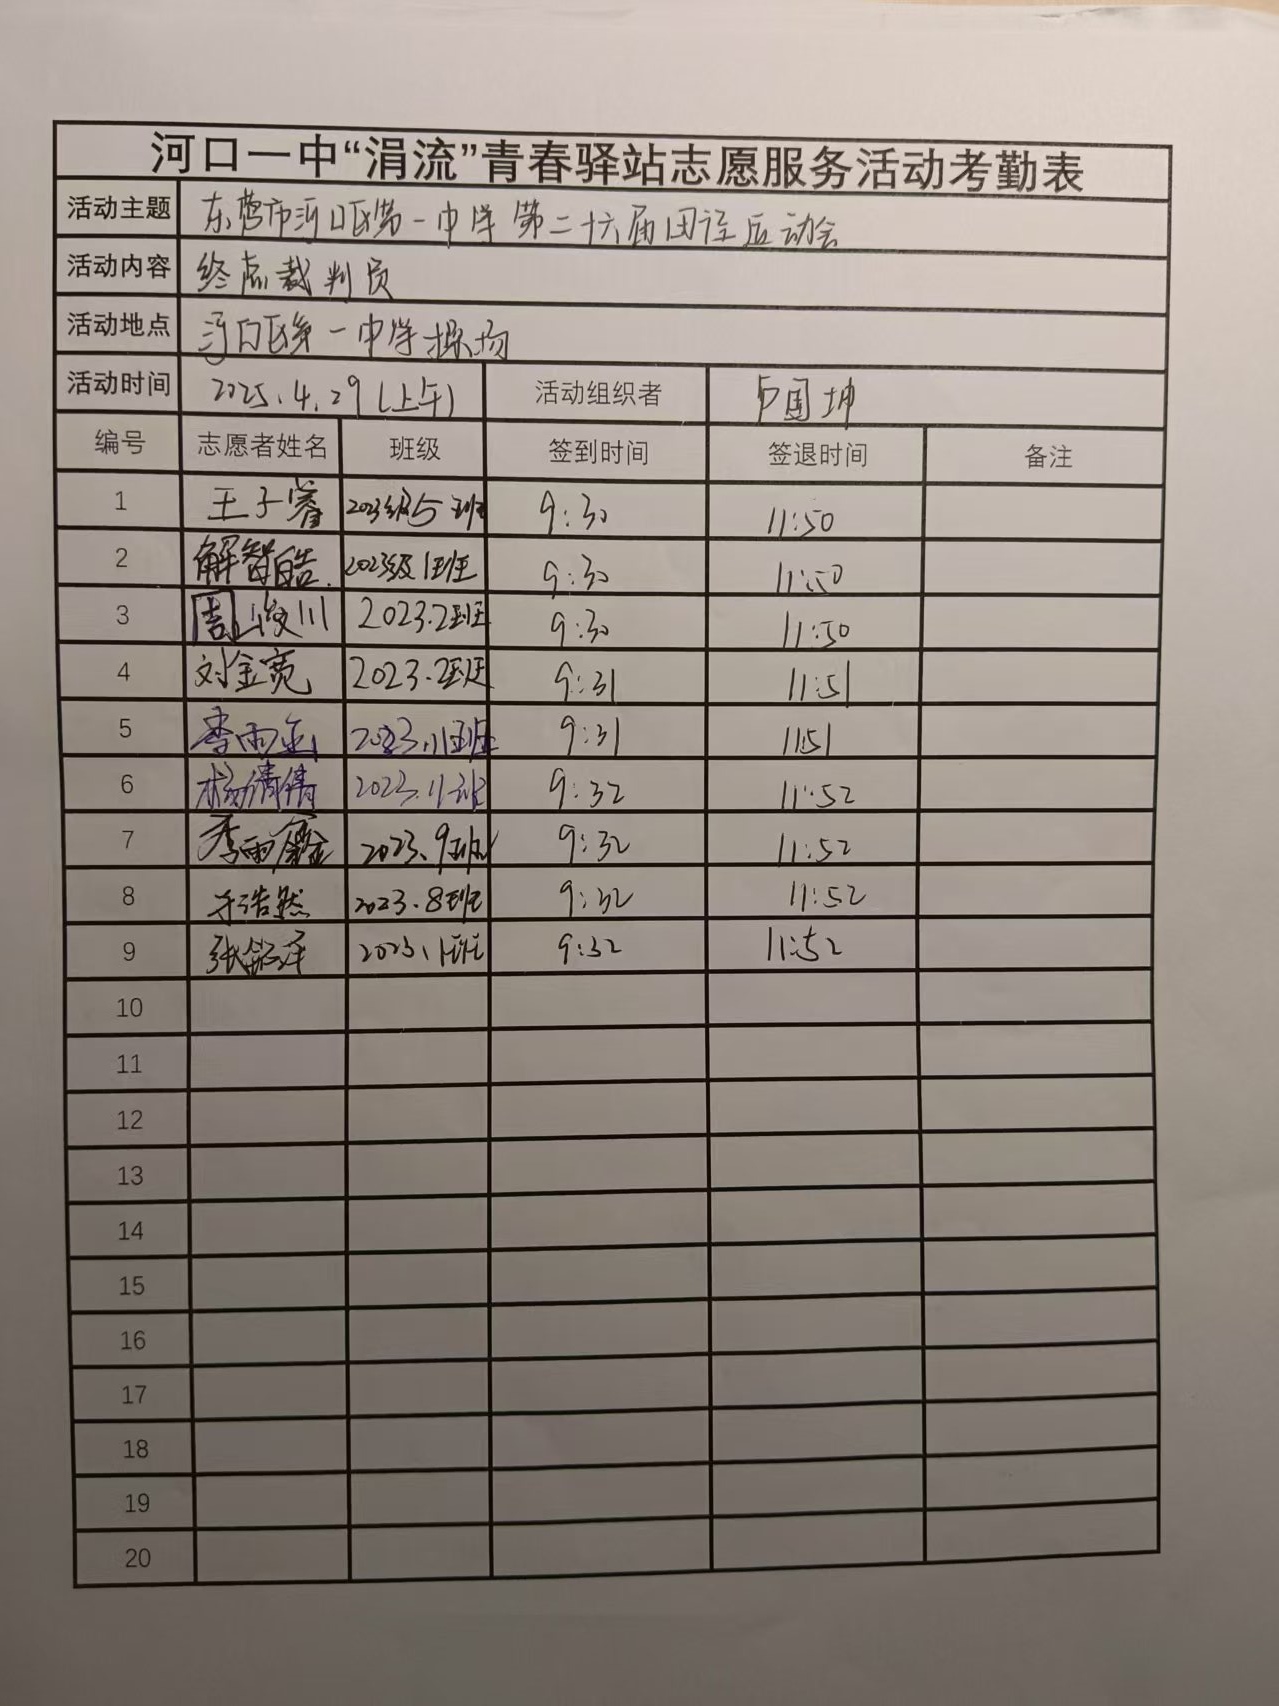 河口一中“涓流”青春驿站志愿服务活动考勤表
活动主题 东营市河口区第一中学第二十六届田径运动会
活动内容 终点裁判员
活动地点 河口区第一中学操场
活动时间 2025.4.29(上午) 活动组织者 卢国坤
编号 志愿者姓名 班级 签到时间 签退时间 备注
1 王子睿 2023级5班 9:30 11:50
2 解智皓 2023级1班 9:30 11:50
3 周峻川 2023.2班 9:30 11:50
4 刘金宽 2023.2班 9:31 11:51
5 李雨 2023.11班 9:31 11:51
6 杨倩倩 2023.11班 9:32 11:52
7 李雨鑫 2023.9班 9:32 11:52
8 浩然 2023.8班 9:32 11:52
9 张铭泽 2023.1班 9:32 11:52
10
11
12
13
14
15
16
17
18
19
20